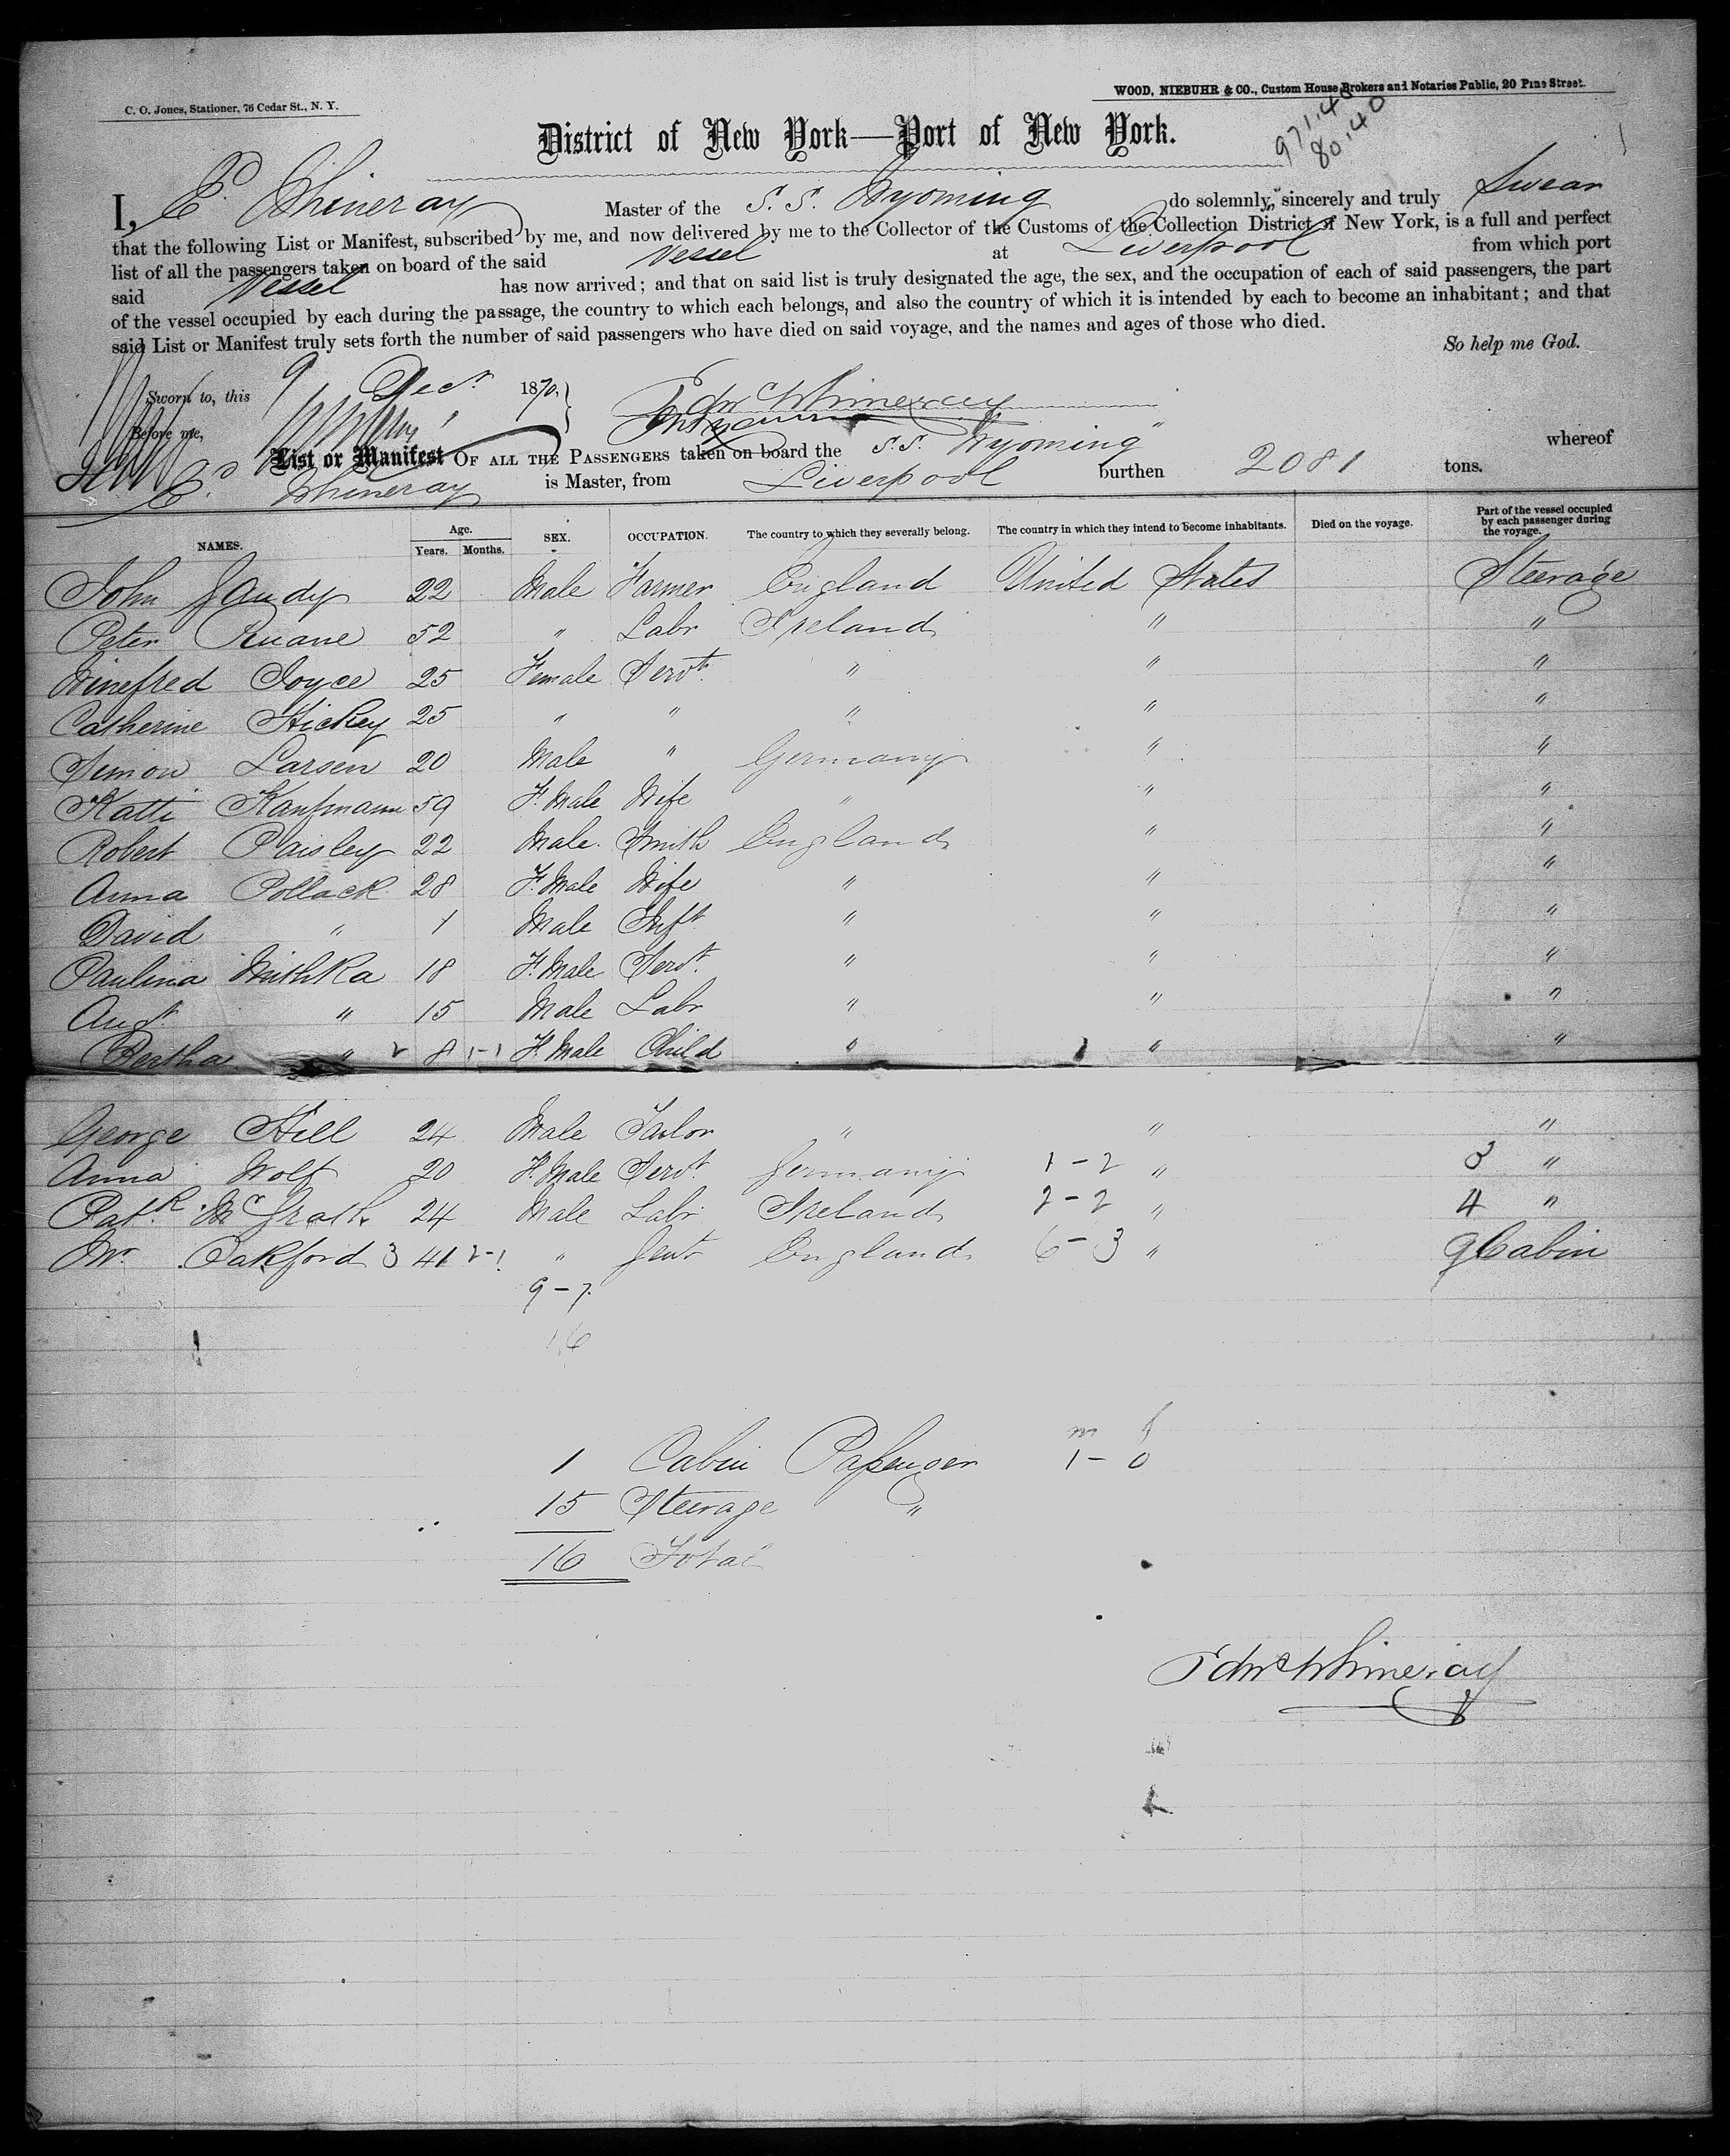 C. O. Jones, Stationer, 76 Cedar St., N. Y.
WOOD, NIEBUHR & CO., Custom House Brokers and Notaries Public, 20 Pine Street.
971,40
80,40
District of New York—Port of New York.
I, E. Whineray Master of the S. S. Wyoming do solemnly, sincerely and truly Swear
that the following List or Manifest, subscribed by me, and now delivered by me to the Collector of the Customs of the Collection District of New York, is a full and perfect
list of all the passengers taken on board of the said Vessel at Liverpool from which port
said Vessel has now arrived; and that on said list is truly designated the age, the sex, and the occupation of each of said passengers, the part
of the vessel occupied by each during the passage, the country to which each belongs, and also the country of which it is intended by each to become an inhabitant; and that
said List or Manifest truly sets forth the number of said passengers who have died on said voyage, and the names and ages of those who died.
So help me God.
Sworn to, this 9 Decr 1870. Edw Whineray
Before me,
List or Manifest OF ALL THE PASSENGERS taken on board the S.S. "Wyoming" whereof
E. Whineray is Master, from Liverpool burthen 2081 tons.
NAMES. Age. Years. Months. SEX. OCCUPATION. The country to which they severally belong. The country in which they intend to become inhabitants. Died on the voyage. Part of the vessel occupied by each passenger during the voyage.
John 22 Male Farmer England United States Steerage
Peter Ruane 52 " Labr Ireland " "
Winefred Joyce 25 Female Servt. " " "
Catherine Hickey 25 " " " " "
Simon Larsen 20 Male " Germany " "
Katti Kaufmann 59 F.Male Wife " " "
Robert Paisley 22 Male. Smith England " "
Anna Pollack 28 F.Male Wife " " "
David " 1 Male Inft " " "
Paulina Mithka 18 F.Male Servt. " " "
Augt. " 15 Male Labr " " "
Bertha " 2 8 1-1 F.Male Child " " "
George Hill 24 Male Tailor " " "
Anna Wolf 20 F.Male Servt. Germany 1-2 " 3 "
Patk. McGrath 24 Male Labr Ireland 2-2 " 4 "
Mr. Oakford 3 41 2-1 " Gent England 6-3 " 9 Cabin
9-7
16
m f
1 Cabin Passenger 1-0
15 Steerage "
16 Total
Edw Whineray